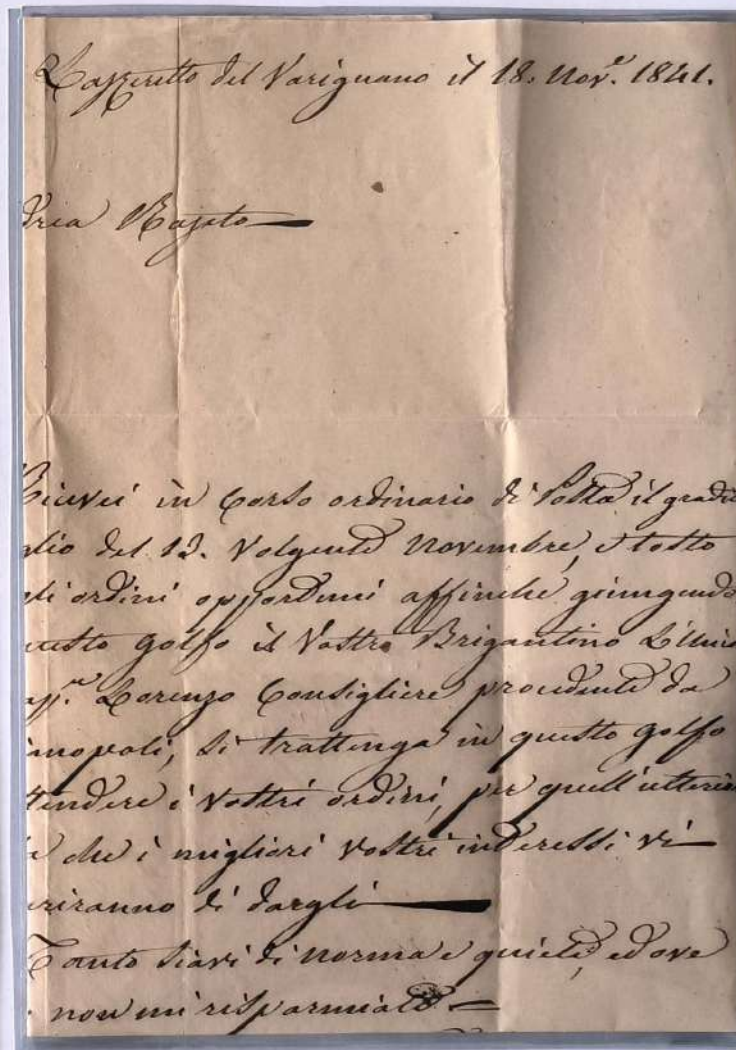 Lazzeretto del Varignano il 18. Nov.e 1841.
drea Rajeto
Ricevei in Corso ordinario di Posta il gradi
glio del 13. Volgente Novembre, e tosto
gli ordini opportuni affinchè giungendo
uesto golfo il Vostro Brigantino L'Uni
app.e Lorenzo Consigliere procedente da
inopoli, si trattenga in questo golfo
ttendere i Vostri ordini, per quell'ulterio
a che i migliori vostri interessi vi
eriranno di dargli
Tanto siavi di norma e quiete, ed ove
non mi risparmiate =